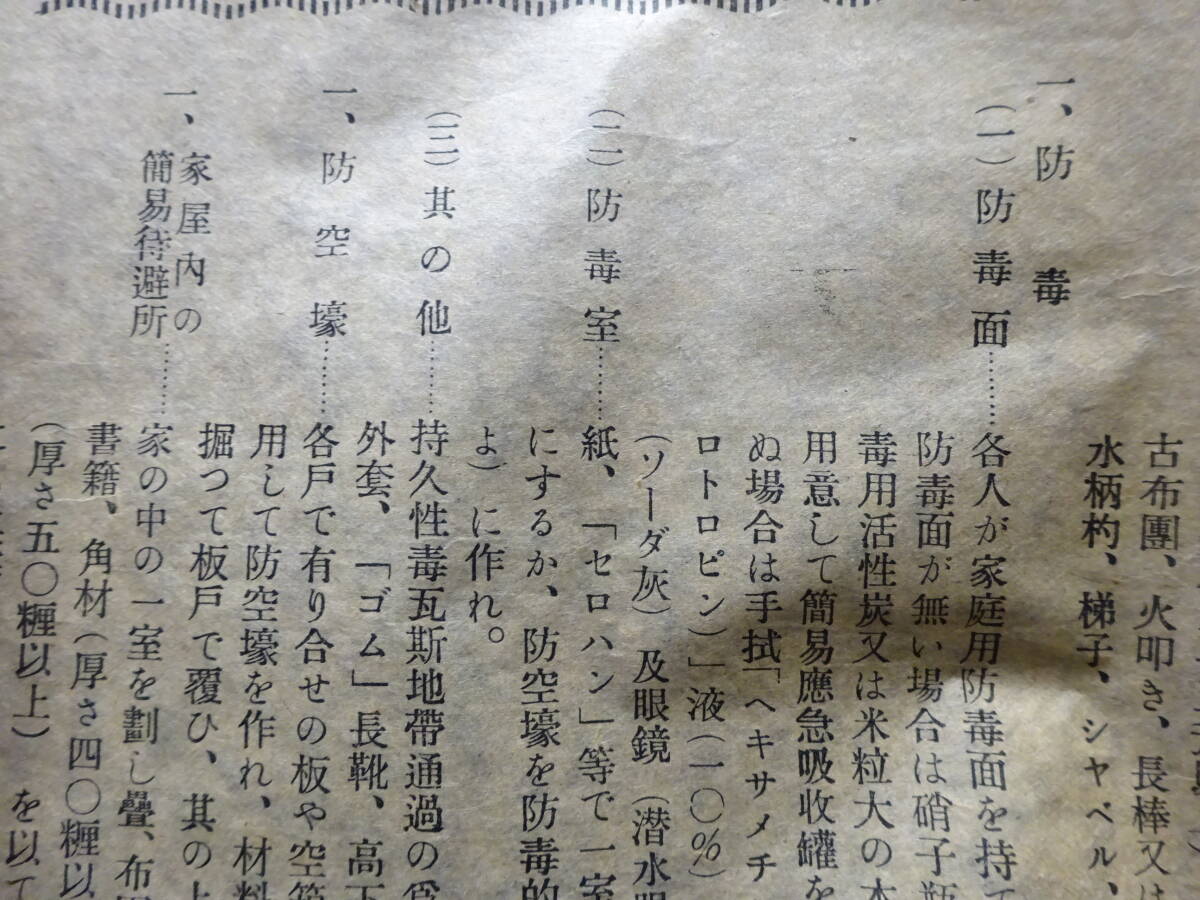 古布團、火叩き、長棒又は
水柄杓、梯子、シヤベル、
一、防毒
(一)防毒面………各人が家庭用防毒面を持て
防毒面が無い場合は硝子瓶
毒用活性炭又は米粒大の木
用意して簡易應急吸收罐を
ぬ場合は手拭「ヘキサメチ
ロトロピン)」液(一〇%)
(ソーダ灰)及眼鏡(潜水眼
(二)防毒室………紙、「セロハン」等で一室
にするか、防空壕を防毒的
よ)に作れ。
(三)其の他………持久性毒瓦斯地帶通過の爲
外套、「ゴム」長靴、高下
一、防空壕………各戸で有り合せの板や空箱
用して防空壕を作れ、材料
掘つて板戸で覆ひ、其の上
一、家屋內の
簡易待避所………家の中の一室を劃し疊、布團
書籍、角材(厚さ四〇糎以
(厚さ五〇糎以上)を以て